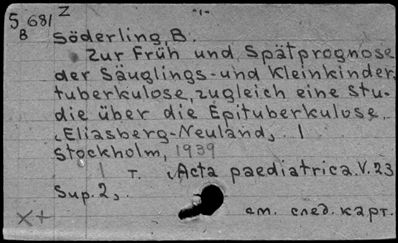 5 681 Z
B
-1-
Söderling, B.
Zur Früh und Spätprognose
der Säuglings- und Kleinkinder
tuberkulose, zugleich eine Stu-
die über die Epituberkulose
"Eliasberg-Neuland". 1
Stockholm, 1939
1 т. "Acta paediatrica. V. 23
Sup. 2,.
x+
см. след. карт.